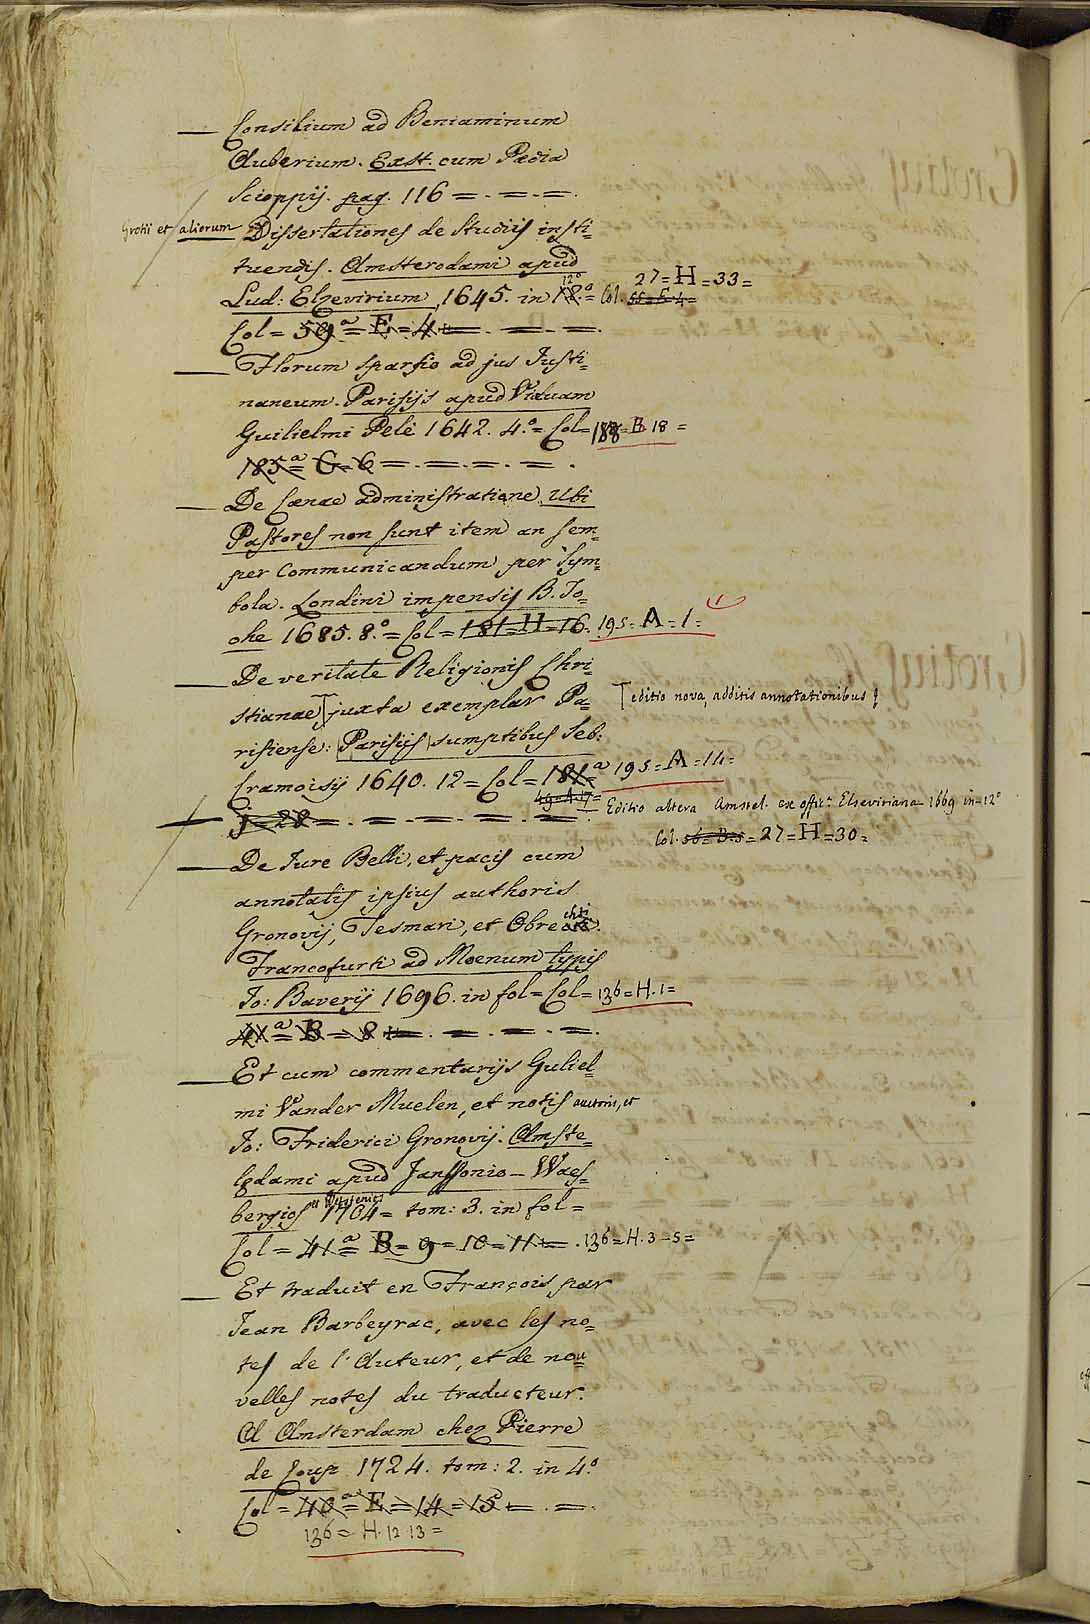 — Consilium ad Beniaminum
Auberium. Exst. cum Pædia
Scioppij. pag. 116 = . = . =
Grotii et aliorum Dissertationes de Studiis insti=
tuendis. Amsterodami apud
Lud: Elzevirium 1645. in 12° 18.° = Col. 55=C=4= 27=H=33=
Col = 59ª = E = 4 = . = . = .
— Florum sparsio ad jus Justi=
naneum. Parisijs apud Viduam
Guilielmi Pelè 1642. 4.° = Col = 188 = B 18 =
185ª = G = 6 = . = . = . = .
— De Cænae administratione, Ubi
Pastores non sunt item an sem=
per Communicandum per Sym=
bola. Londini impensis B. To=
oke 1685. 8.° = Col = 181=H=16. 195 = A = 1 =
— De veritate Religionis Chri=
stianae juxta exemplar Pa= editio nova, additis annotationibus
risiense: Parisijs sumptibus Seb:
Cramoisij 1640. 12 = Col = 181ª 195 = A = 14 =
49=A=17= Editio altera Amstel. ex offic.ª Elseviriana 1669 in=12°
— J=28 = . = . = . = . = . Col. 56=B=5= 27=H=30=
— De Jure Belli, et pacis cum
annotatis ipsius authoris
Gronovij, Tesmari, et Obrechti
Francofurti ad Moenum typis
Jo: Baverij 1696. in fol = Col = 136=H.1=
41ª = B = 8 = . = . = . = .
— Et cum commentarijs Guliel=
mi Vander Muelen, et notis auctoris, et
Jo: Friderici Gronovij. Amste=
lodami apud Janssonio – Waes=
bergios et 1704 = tom: 3. in fol =
Col = 41ª = B = 9 = 10 = 11 = . 136=H.3–5=
— Et traduit en François par
Jean Barbeyrac, avec les no=
tes de l'Auteur, et de nou
velles notes du traducteur.
A Amsterdam chez Pierre
de Coup 1724. tom: 2. in 4.°
Col = 40ª = E = 14 = 15 = . = .
136 = H. 12 13 =